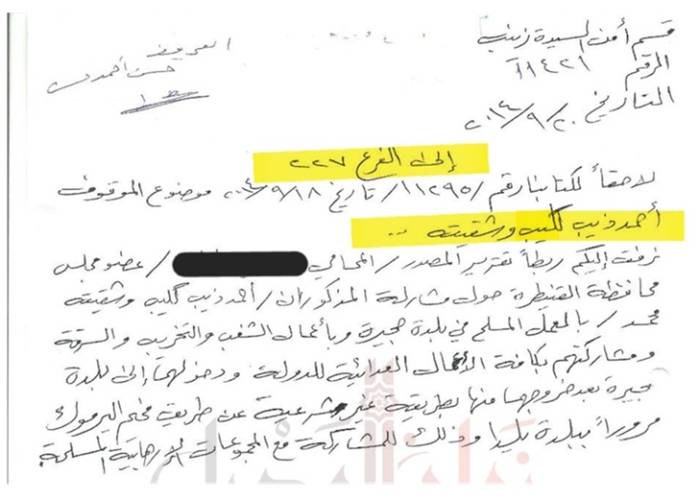 قسم أمن السيدة زينب
العريف
حسن أحمد
الرقم ١١٤٢١
التاريخ ٢٠١٤/٩/٢٠
إلى الفرع ٢٢٧
لاحقاً لكتابنا رقم /١١٢٩٥/ تاريخ ٢٠١٤/٩/١٨ موضوع الموقوف
أحمد ذيب كليب وشقيقه ..
نرفق إليكم ربطاً تقرير المصدر / المحامي / عضو مجلس
محافظة القنيطرة حول مشاركة المذكوران / أحمد ذيب كليب وشقيقه
محمد / بالعمل المسلح في بلدة حجيرة وبأعمال الشغب والتخريب والسرقة
ومشاركتهم بكافة الأعمال العدائية للدولة ودخولهما إلى بلدة
حجيرة بعد خروجهما منها بطريقة غير شرعية عن طريق مخيم اليرموك
مروراً ببلدة يلدا وذلك للمشاركة مع المجموعات الإرهابية المسلحة